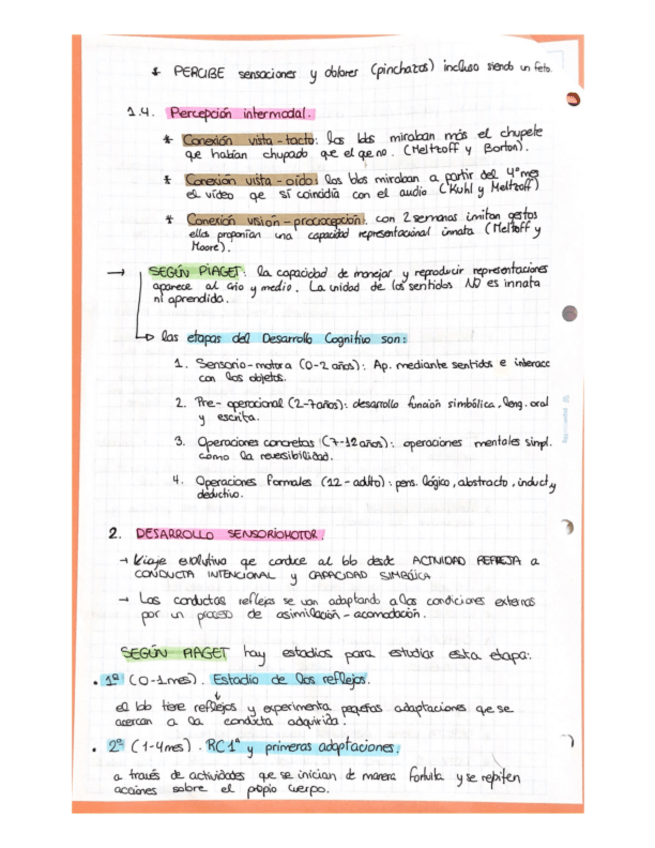 * PERCIBE sensaciones y dolores (pinchazos) incluso siendo un feto.
1.4. Percepción intermodal.
* Conexión vista-tacto: los bbs miraban más el chupete
que habían chupado que el que no. (Meltzoff y Borton).
* Conexión vista-oído: los bbs miraban a partir del 4º mes
el vídeo que sí coincidía con el audio (Kuhl y Meltzoff)
* Conexión visión-propiocepción: con 2 semanas imitan gestos
ellos proponían una capacidad representacional innata (Meltzoff y
Moore).
→ SEGÚN PIAGET: la capacidad de manejar y reproducir representaciones
aparece al año y medio. La unidad de los sentidos NO es innata
ni aprendida.
↳ las etapas del Desarrollo Cognitivo son:
1. Sensorio-motora (0-2 años): Ap. mediante sentidos e interacc
con los objetos.
2. Pre-operacional (2-7años): desarrollo función simbólica, leng. oral
y escrita.
3. Operaciones concretas (7-12 años): operaciones mentales simpl.
como la reversibilidad.
4. Operaciones formales (12-adlto): pens. lógico, abstracto, induct y
deductivo.
2. DESARROLLO SENSORIOMOTOR.
→ Viaje evolutivo que conduce al bb desde ACTIVIDAD REFLEJA a
CONDUCTA INTENCIONAL y CAPACIDAD SIMBÓLICA
→ Las conductas reflejas se van adaptando a las condiciones externas
por un proceso de asimilación-acomodación.
SEGÚN PIAGET hay estadios para estudiar esta etapa:
• 1º (0-1mes). Estadio de los reflejos.
↓
el bb tiene reflejos y experimenta pequeñas adaptaciones que se
acercan a la conducta adquirida.
• 2º (1-4mes). RC1ª y primeras adaptaciones.
a través de actividades que se inician de manera fortuita y se repiten
acciones sobre el propio cuerpo.